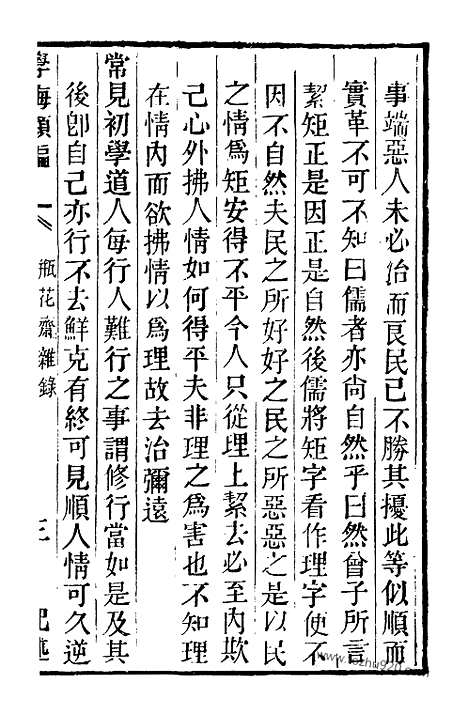 事端惡人未必治而良民已不勝其擾此等似順而
實革不可不知曰儒者亦尚自然乎曰然曾子所言
絜矩正是因正是自然後儒將矩字看作理字便不
因不自然夫民之所好好之民之所惡惡之是以民
之情爲矩安得不平今人只從理上絜去必至內欺
己心外拂人情如何得平夫非理之爲害也不知理
在情內而欲拂情以爲理故去治彌遠
常見初學道人每行人難行之事謂修行當如是及其
後卽自己亦行不去鮮克有終可見順人情可久逆
學海類編 瓶花齋雜錄 三 記述